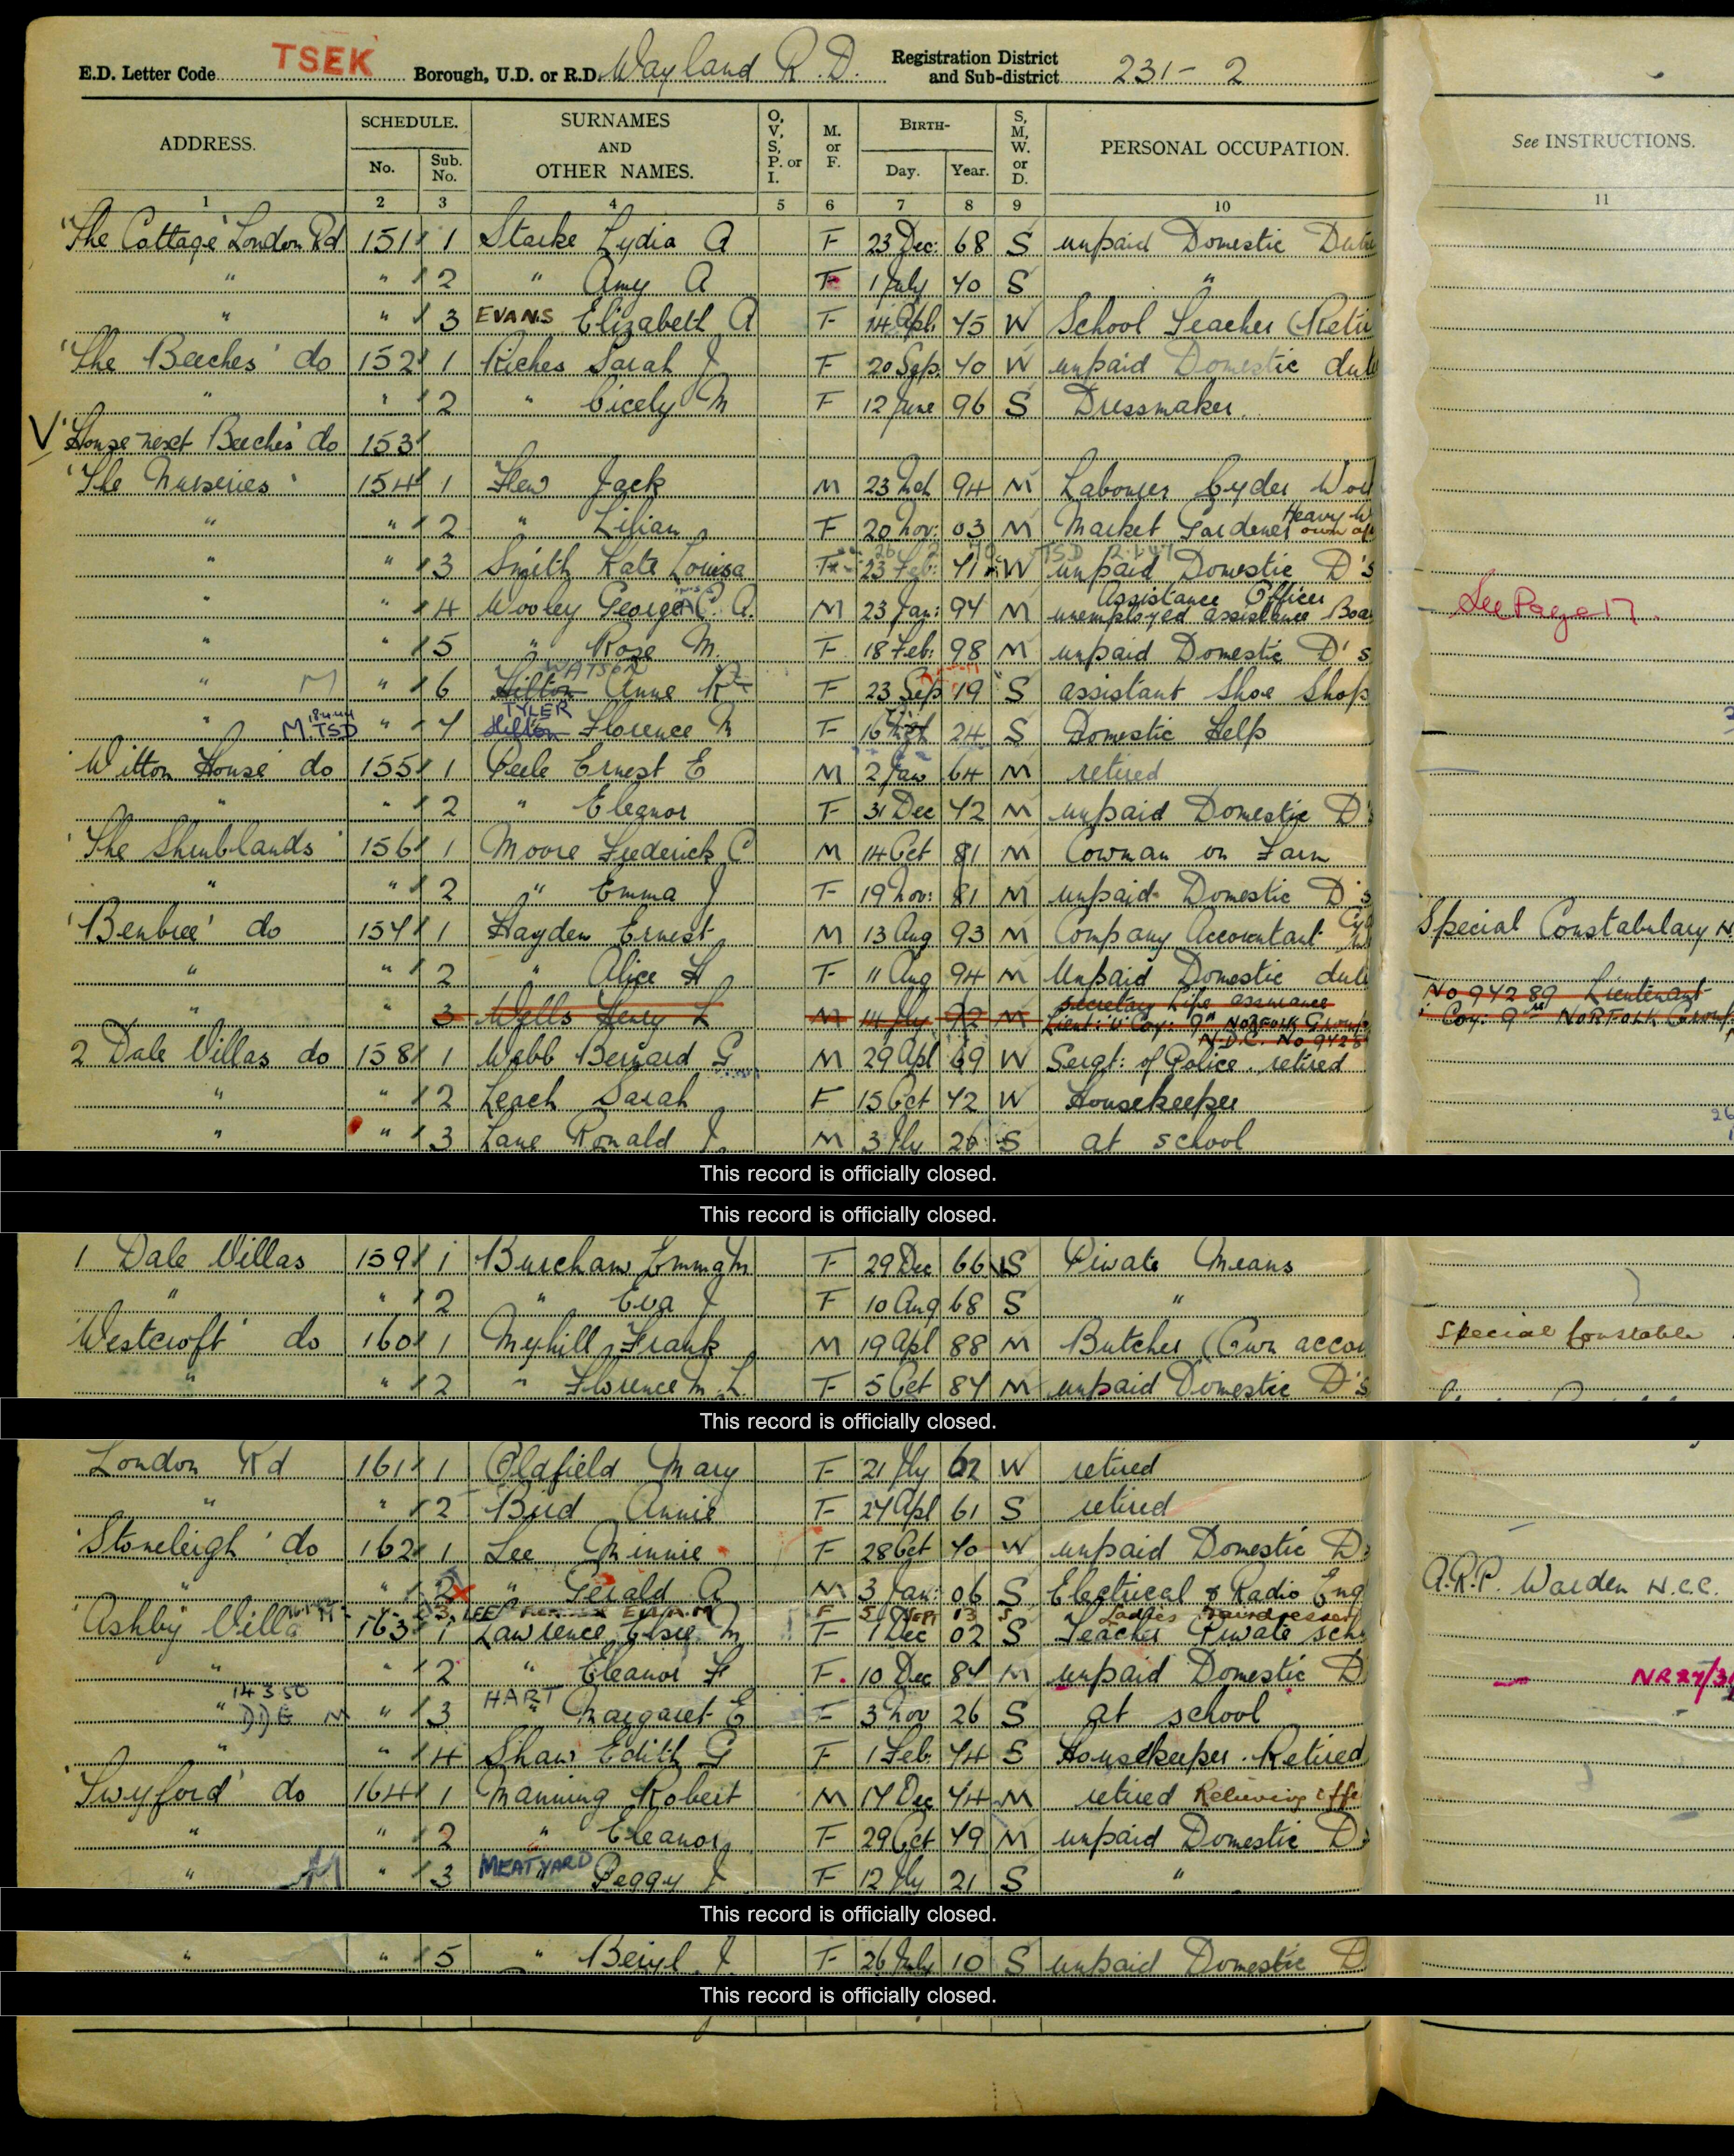 E.D. Letter Code TSEK Borough, U.D. or R.D. Wayland R.D. Registration District and Sub-district 231 - 2
ADDRESS. SCHEDULE. No. Sub. No. SURNAMES AND OTHER NAMES. O, V, S, P. or I. M. or F. BIRTH- Day. Year. S, M, W. or D. PERSONAL OCCUPATION. See INSTRUCTIONS.
1 2 3 4 5 6 7 8 9 10 11
'The Cottage' London Rd 151 1 Starke Lydia A F 23 Dec: 68 S unpaid Domestic
" " 2 " Amy A F 1 July 70 S "
" " 3 EVANS Elizabeth A F 14 Apl: 75 W School Teacher (Reti
'The Beeches' do 152 1 Riches Sarah J F 20 Sep: 70 W unpaid Domestic dut
" " 2 " Cicely M F 12 June 96 S Dressmaker
V 'House next Beeches' do 153
'The Nurseries' 154 1 Flew Jack M 23 94 M Labourer Cyder Wor
Heavy W
" " 2 " Lilian F 20 Nov: 03 M Market Gardener own
TSD
" " 3 Smith Kate Louisa F 23 Feb: 71 W unpaid Domestic D's
Assistance Officer
" " 4 Wooley George C. A. M 23 Jan: 94 M unemployed assistance Boa See Page 17.
" " 5 " Rose M. F 18 Feb: 98 M unpaid Domestic D's
WATSON
" M " 6 Hilton Anne R F 23 Sep 19 S assistant Shoe Shop
TYLER
" M.TSD " 7 Hilton Florence M F 16 24 S Domestic Help
'Witton House' do 155 1 Peele Ernest E M 2 Jan 64 M retired
" " 2 " Eleanor F 31 Dec 72 M unpaid Domestic D's
'The Shrublands' 156 1 Moore Frederick C M 14 Oct 81 M Cowman on Farm
" " 2 " Emma J F 19 Nov: 81 M unpaid Domestic D's
'Benbree' do 157 1 Hayden Ernest M 13 Aug 93 M Company Accountant Special Constabulary
" " 2 " Alice H F 11 Aug 94 M Unpaid Domestic duti
secretary Life assurance No 94289 Lieutenant
" " 3 Wells Henry L M 14 Jly 92 M Lieut: Coy: 9th NORFOLK Group Coy: 9th NORFOLK Group
N.D.C. No 9428
2 Dale Villas do 158 1 Webb Bernard G M 29 Apl 69 W Sergt: of Police. retired
" " 2 Leach Sarah F 15 Oct 72 W Housekeeper
" " 3 Lane Ronald J. M 3 Jly 26 S at school
This record is officially closed.
This record is officially closed.
1 Dale Villas 159 1 Burcham Emma M F 29 Dec 66 S Private Means
" " 2 " Eva J F 10 Aug 68 S "
'Westcroft' do 160 1 Myhill Frank M 19 Apl 88 M Butcher (Own accou Special Constable
" " 2 " Florence M. L. F 5 Oct 87 M unpaid Domestic D's
This record is officially closed.
London Rd 161 1 Oldfield Mary F 21 Jly 62 W retired
" " 2 Bird Annie F 27 Apl 61 S retired
'Stoneleigh' do 162 1 Lee Minnie F 28 Oct 70 W unpaid Domestic D's
" " 2 " Gerald A M 3 Jan: 06 S Electrical & Radio Eng A.R.P. Warden N.C.C.
3 LEE F 5 SEPT 13 S Ladies Hairdresser
'Ashby Villa 163 1 Lawrence Elsie M F 1 Dec 02 S Teacher Private sch
" " 2 " Eleanor F F 10 Dec 87 M unpaid Domestic D NR27/3
14 3 50 HART
" DDE M " 3 " Margaret E F 3 Nov 26 S at school
" " 4 Shaw Edith G F 1 Feb. 74 S Housekeeper. Retired
'Twyford' do 164 1 Manning Robert M 17 Dec 74 M retired Relieving Offi
" " 2 " Eleanor F 29 Oct 79 M unpaid Domestic D's
" M " 3 MEATYARD " Peggy J F 12 Jly 21 S "
This record is officially closed.
" " 5 " Beryl J. F 26 July 10 S unpaid Domestic D
This record is officially closed.